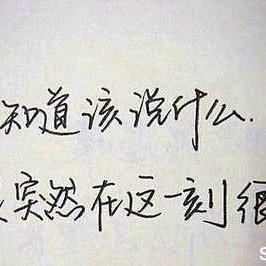 知道该说什么.
突然在这一刻很
S